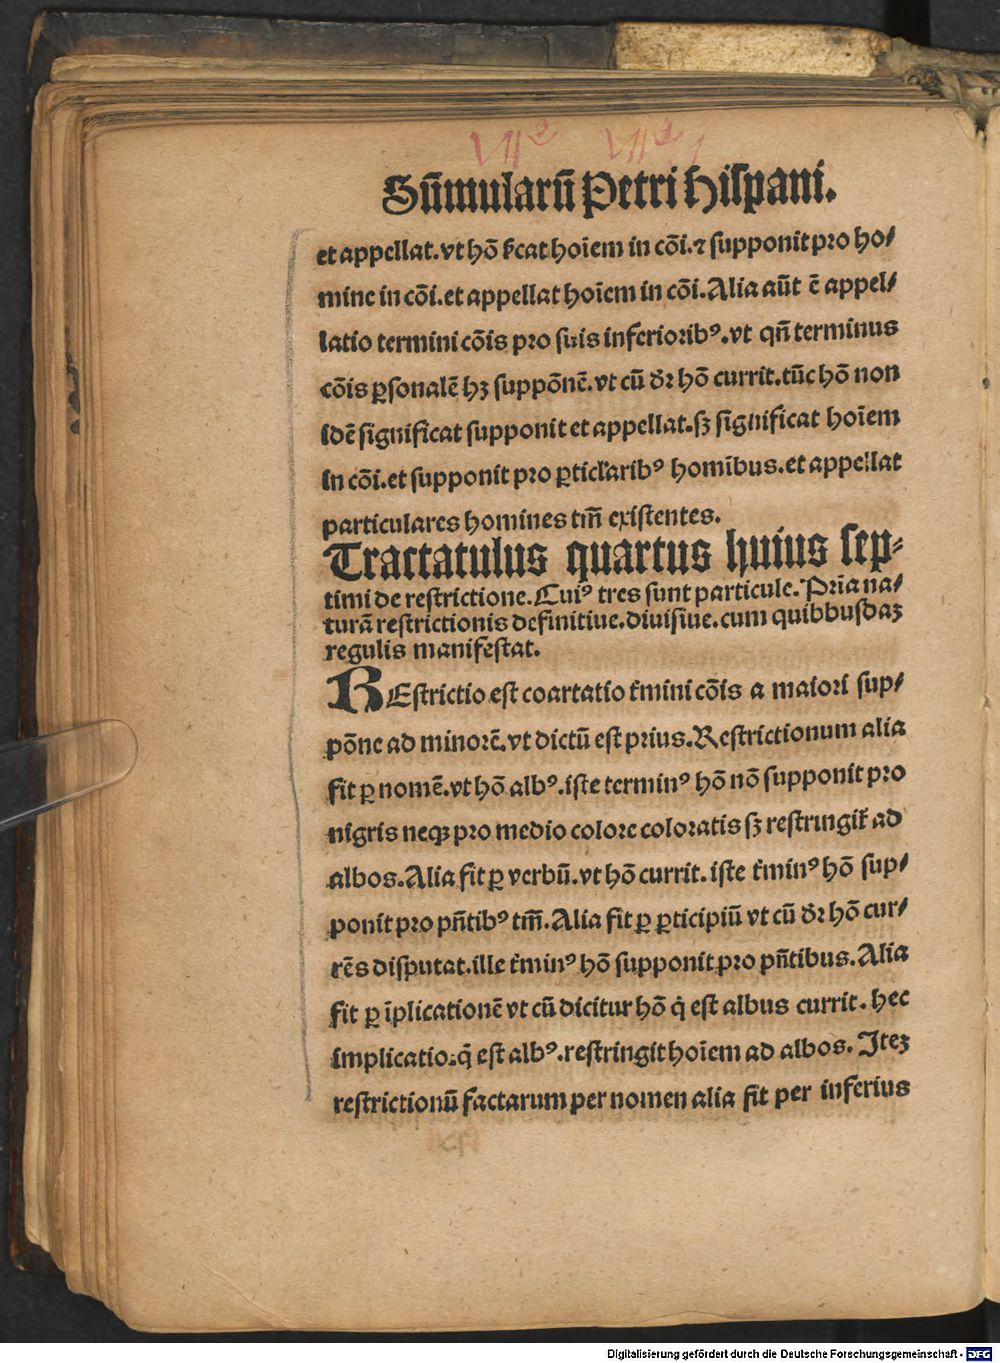 Sūmularū Petri Hiſpani.
et appellat. vt hō ſꝛcat hoīem in cōi. ⁊ ſupponit pro ho/
mine in cōi. et appellat hoīem in cōi. Alia aūt ē appel/
latio termini cōis pro ſuis inferioribꝰ. vt qñ terminus
cōis ꝑſonalē hꝫ ſuppōnē. vt cū dꝛ hō currit. tūc hō non
idē ſignificat ſupponit et appellat. ſꝫ ſignificat hoīem
in cōi. et ſupponit pro ꝑticl'aribꝰ homībus. et appellat
particulares homines tm̄ exiſtentes.
Tractatulus quartus huius ſep⸗
timi de reſtrictione. Cuiꝰ tres ſunt particule. Pria na/
turā reſtrictionis definitiue. diuiſiue. cum quibbuſdaꝫ
regulis manifeſtat.
REſtrictio eſt coartatio t'mini cōis a maiori ſup/
pōne ad minorē. vt dictū eſt prius. Reſtrictionum alia
fit ꝑ nomē. vt hō albꝰ. iſte terminꝰ hō nō ſupponit pro
nigris neqꝫ pro medio colore coloratis ſꝫ reſtringit' ad
albos. Alia fit ꝑ verbū. vt hō currit. iſte t'minꝰ hō ſup/
ponit pro pñtibꝰ tm̄. Alia fit ꝑ ꝑticipiū vt cū dꝛ hō cur/
rēs diſputat. ille t'minꝰ hō ſupponit pro pñtibus. Alia
fit ꝑ īplicationē vt cū dicitur hō q̇ eſt albus currit. hec
implicatio. q̇ eſt albꝰ. reſtringit hoīem ad albos. Iteꝫ
reſtrictionū factarum per nomen alia fit per inferius
Digitalisierung gefördert durch die Deutsche Forschungsgemeinschaft - DFG